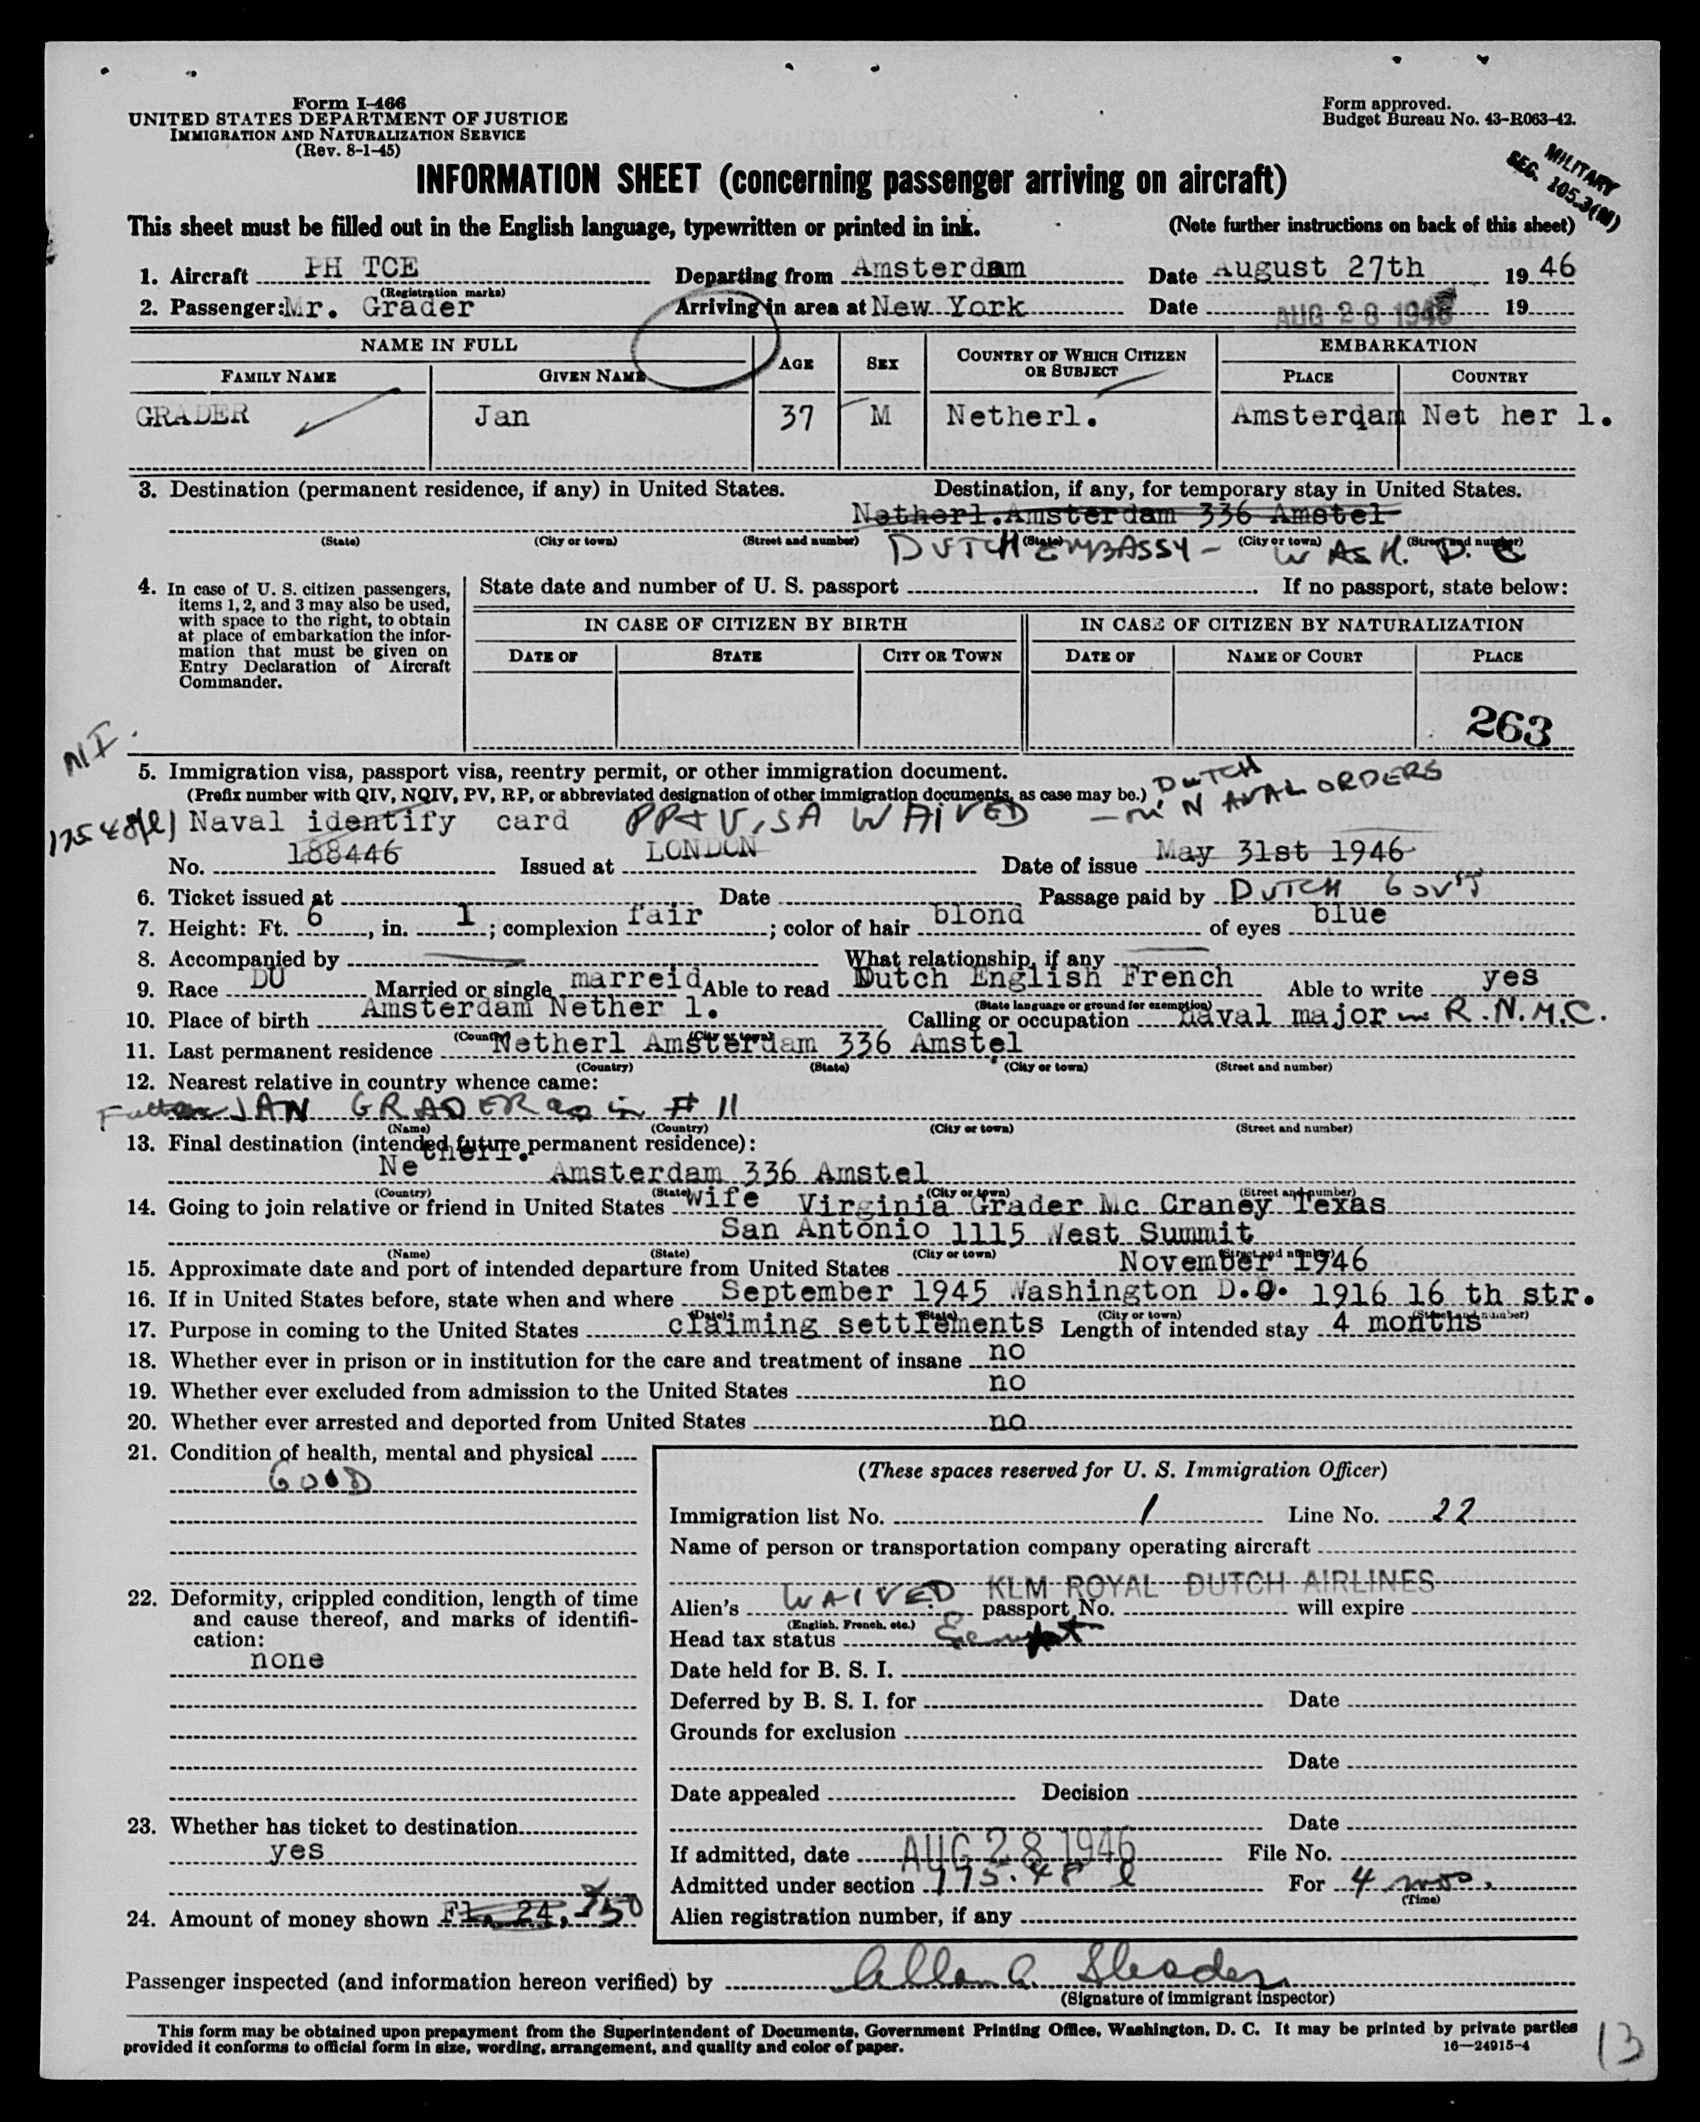 Form I-466
UNITED STATES DEPARTMENT OF JUSTICE
IMMIGRATION AND NATURALIZATION SERVICE
(Rev. 8-1-45)
Form approved.
Budget Bureau No. 43-R063-42.
MILITARY
SEC. 105.3(M)
INFORMATION SHEET (concerning passenger arriving on aircraft)
This sheet must be filled out in the English language, typewritten or printed in ink. (Note further instructions on back of this sheet)
1. Aircraft PH TCE Departing from Amsterdam Date August 27th 1946
(Registration marks)
2. Passenger: Mr. Grader Arriving in area at New York Date AUG 28 1946 19
NAME IN FULL AGE SEX COUNTRY OF WHICH CITIZEN OR SUBJECT EMBARKATION
FAMILY NAME GIVEN NAME PLACE COUNTRY
GRADER Jan 37 M Netherl. Amsterdam Net her l.
3. Destination (permanent residence, if any) in United States. Destination, if any, for temporary stay in United States.
Netherl. Amsterdam 336 Amstel
(State) (City or town) (Street and number) (State) (City or town) (Street and number)
DUTCH EMBASSY - WASH. D.C
4. In case of U. S. citizen passengers, items 1, 2, and 3 may also be used, with space to the right, to obtain at place of embarkation the information that must be given on Entry Declaration of Aircraft Commander.
State date and number of U. S. passport . If no passport, state below:
IN CASE OF CITIZEN BY BIRTH IN CASE OF CITIZEN BY NATURALIZATION
DATE OF STATE CITY OR TOWN DATE OF NAME OF COURT PLACE
263
NI.
5. Immigration visa, passport visa, reentry permit, or other immigration document.
(Prefix number with QIV, NQIV, PV, RP, or abbreviated designation of other immigration documents, as case may be.)
DUTCH
NAVAL ORDERS
175.48(l) Naval identify card PP & VISA WAIVED
No. 188446 Issued at LONDON Date of issue May 31st 1946
6. Ticket issued at Date Passage paid by DUTCH GOV'T
7. Height: Ft. 6, in. 1; complexion fair; color of hair blond of eyes blue
8. Accompanied by What relationship, if any
9. Race DU Married or single marreid Able to read Dutch English French Able to write yes
(State language or ground for exemption)
10. Place of birth Amsterdam Nether l. Calling or occupation naval major in R.N.M.C.
(Country) (City or town)
11. Last permanent residence Netherl Amsterdam 336 Amstel
(Country) (State) (City or town) (Street and number)
12. Nearest relative in country whence came:
Father JAN GRADER as in # 11
(Name) (Country) (City or town) (Street and number)
13. Final destination (intended future permanent residence):
Netherl. Amsterdam 336 Amstel
(Country) (State) (City or town) (Street and number)
14. Going to join relative or friend in United States wife Virginia Grader Mc Craney Texas
San Antonio 1115 West Summit
(Name) (State) (City or town) (Street and number)
15. Approximate date and port of intended departure from United States November 1946
16. If in United States before, state when and where September 1945 Washington D.C. 1916 16 th str.
(Date) (State) (City or town) (Street and number)
17. Purpose in coming to the United States claiming settlements Length of intended stay 4 months
18. Whether ever in prison or in institution for the care and treatment of insane no
19. Whether ever excluded from admission to the United States no
20. Whether ever arrested and deported from United States no
21. Condition of health, mental and physical
GOOD
22. Deformity, crippled condition, length of time and cause thereof, and marks of identification:
none
23. Whether has ticket to destination
yes
24. Amount of money shown Fl. 24, $50
(These spaces reserved for U. S. Immigration Officer)
Immigration list No. 1 Line No. 22
Name of person or transportation company operating aircraft
KLM ROYAL DUTCH AIRLINES
Alien's WAIVED passport No. will expire
(English, French, etc.)
Head tax status Exempt
Date held for B. S. I.
Deferred by B. S. I. for Date
Grounds for exclusion
Date
Date appealed Decision
Date
If admitted, date AUG 28 1946 File No.
Admitted under section 175.48 l For 4 mos.
(Time)
Alien registration number, if any
Passenger inspected (and information hereon verified) by Allen A.
(Signature of immigrant inspector)
This form may be obtained upon prepayment from the Superintendent of Documents, Government Printing Office, Washington, D. C. It may be printed by private parties
provided it conforms to official form in size, wording, arrangement, and quality and color of paper. 16—24915-4
13